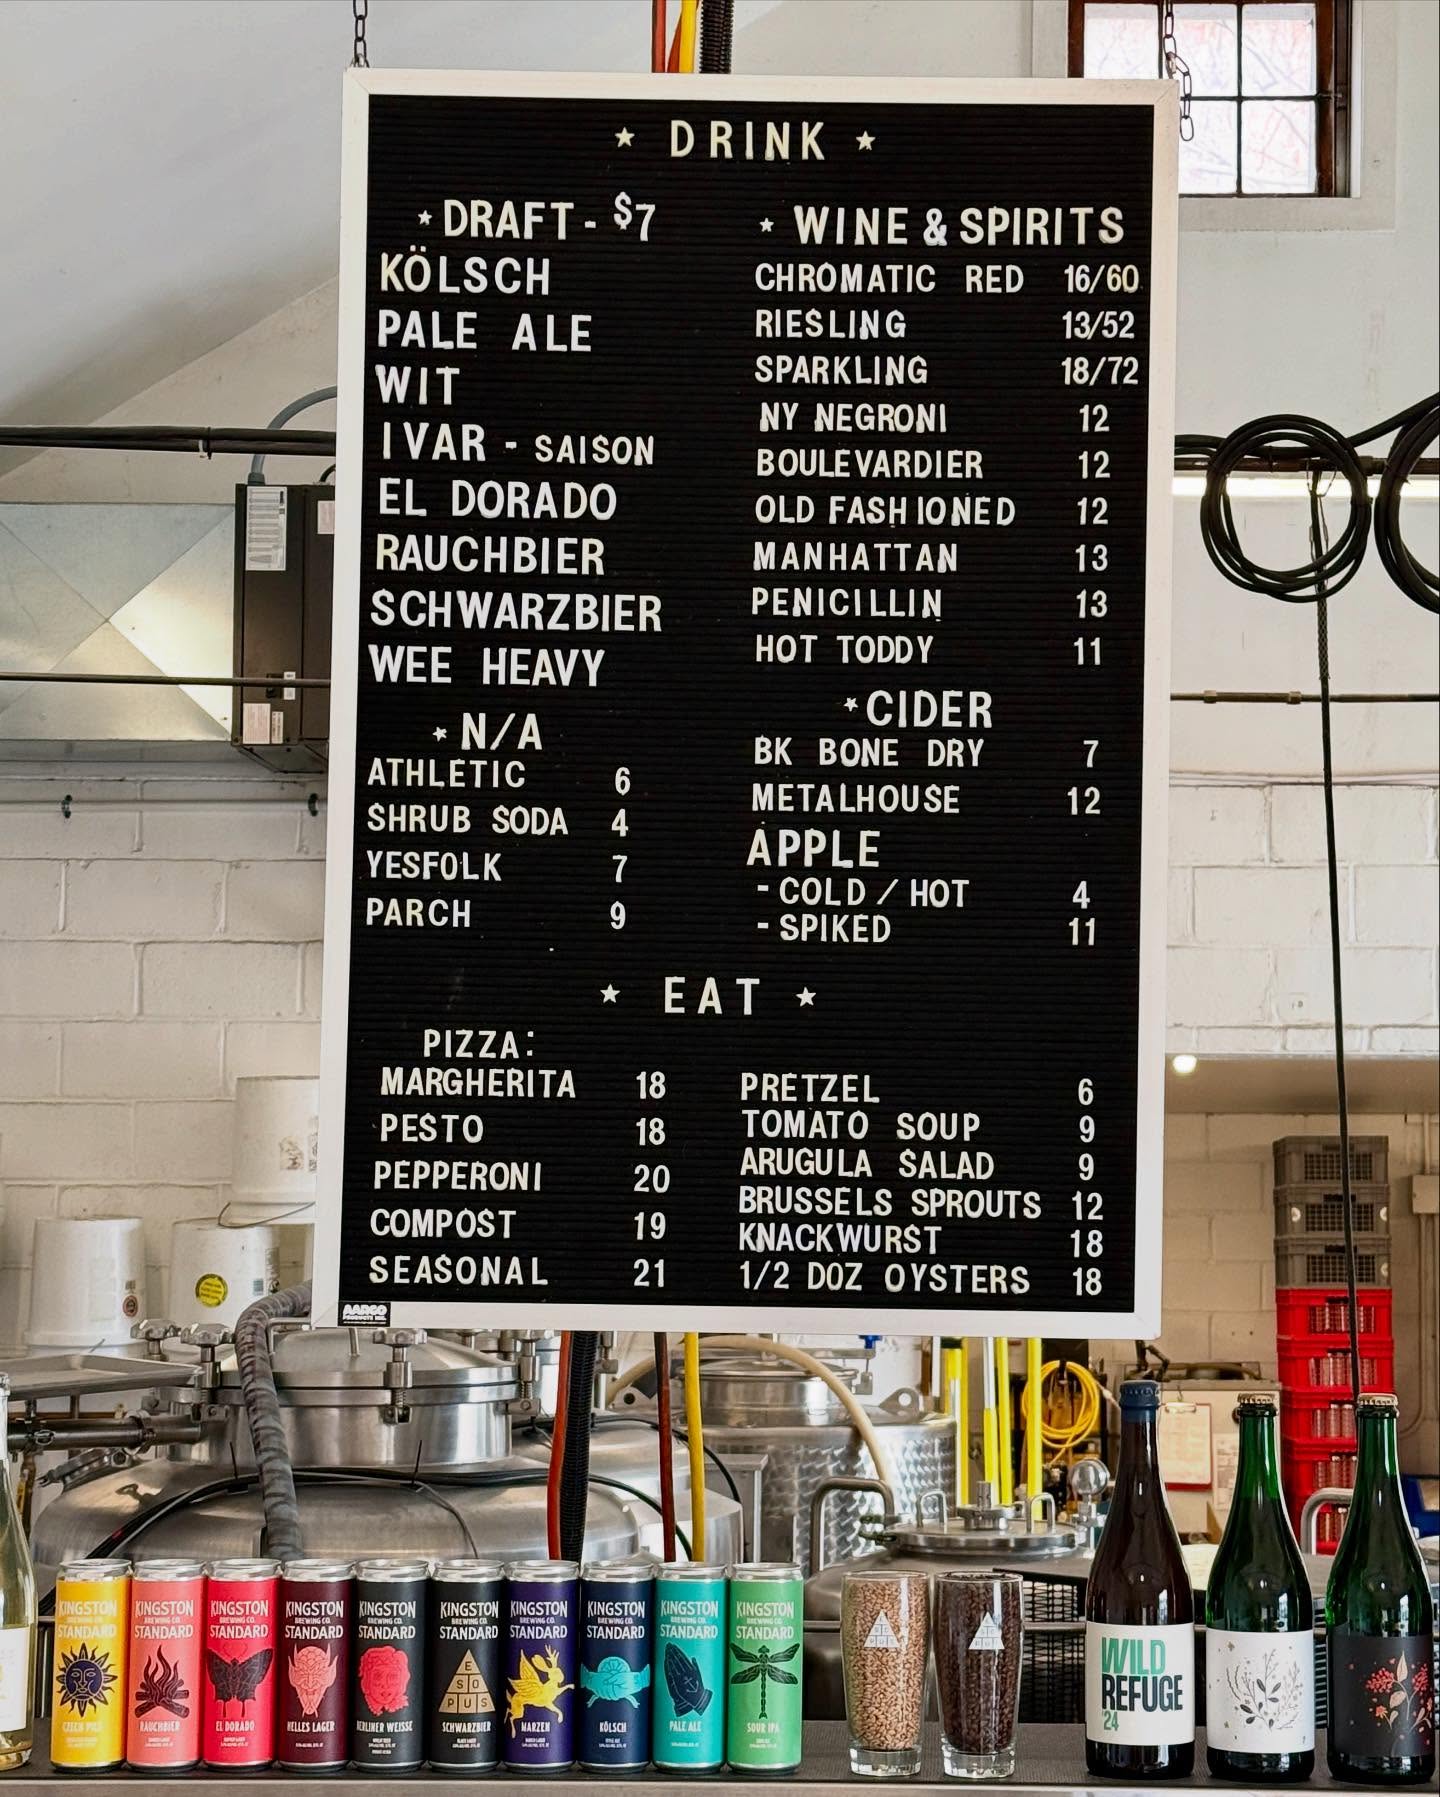 DRINK
DRAFT - $7
KÖLSCH
PALE ALE
WIT
IVAR - SAISON
EL DORADO
RAUCHBIER
SCHWARZBIER
WEE HEAVY
N/A
ATHLETIC 6
SHRUB SODA 4
YESFOLK 7
PARCH 9
WINE & SPIRITS
CHROMATIC RED 16/60
RIESLING 13/52
SPARKLING 18/72
NY NEGRONI 12
BOULEVARDIER 12
OLD FASHIONED 12
MANHATTAN 13
PENICILLIN 13
HOT TODDY 11
CIDER
BK BONE DRY 7
METALHOUSE 12
APPLE
- COLD / HOT 4
- SPIKED 11
EAT
PIZZA:
MARGHERITA 18
PESTO 18
PEPPERONI 20
COMPOST 19
SEASONAL 21
PRETZEL 6
TOMATO SOUP 9
ARUGULA SALAD 9
BRUSSELS SPROUTS 12
KNACKWURST 18
1/2 DOZ OYSTERS 18
AARCO
PRODUCTS INC.
KINGSTON
BREWING CO.
STANDARD
CZECH PILS
KINGSTON
BREWING CO.
STANDARD
RAUCHBIER
KINGSTON
BREWING CO.
STANDARD
EL DORADO
KINGSTON
BREWING CO.
STANDARD
HELLES LAGER
KINGSTON
BREWING CO.
STANDARD
BERLINER WEISSE
KINGSTON
BREWING CO.
STANDARD
E
SO
PUS
SCHWARZBIER
BLACK LAGER
KINGSTON
BREWING CO.
STANDARD
MARZEN
KINGSTON
BREWING CO.
STANDARD
KÖLSCH
KINGSTON
BREWING CO.
STANDARD
PALE ALE
KINGSTON
BREWING CO.
STANDARD
SOUR IPA
WILD
REFUGE
'24